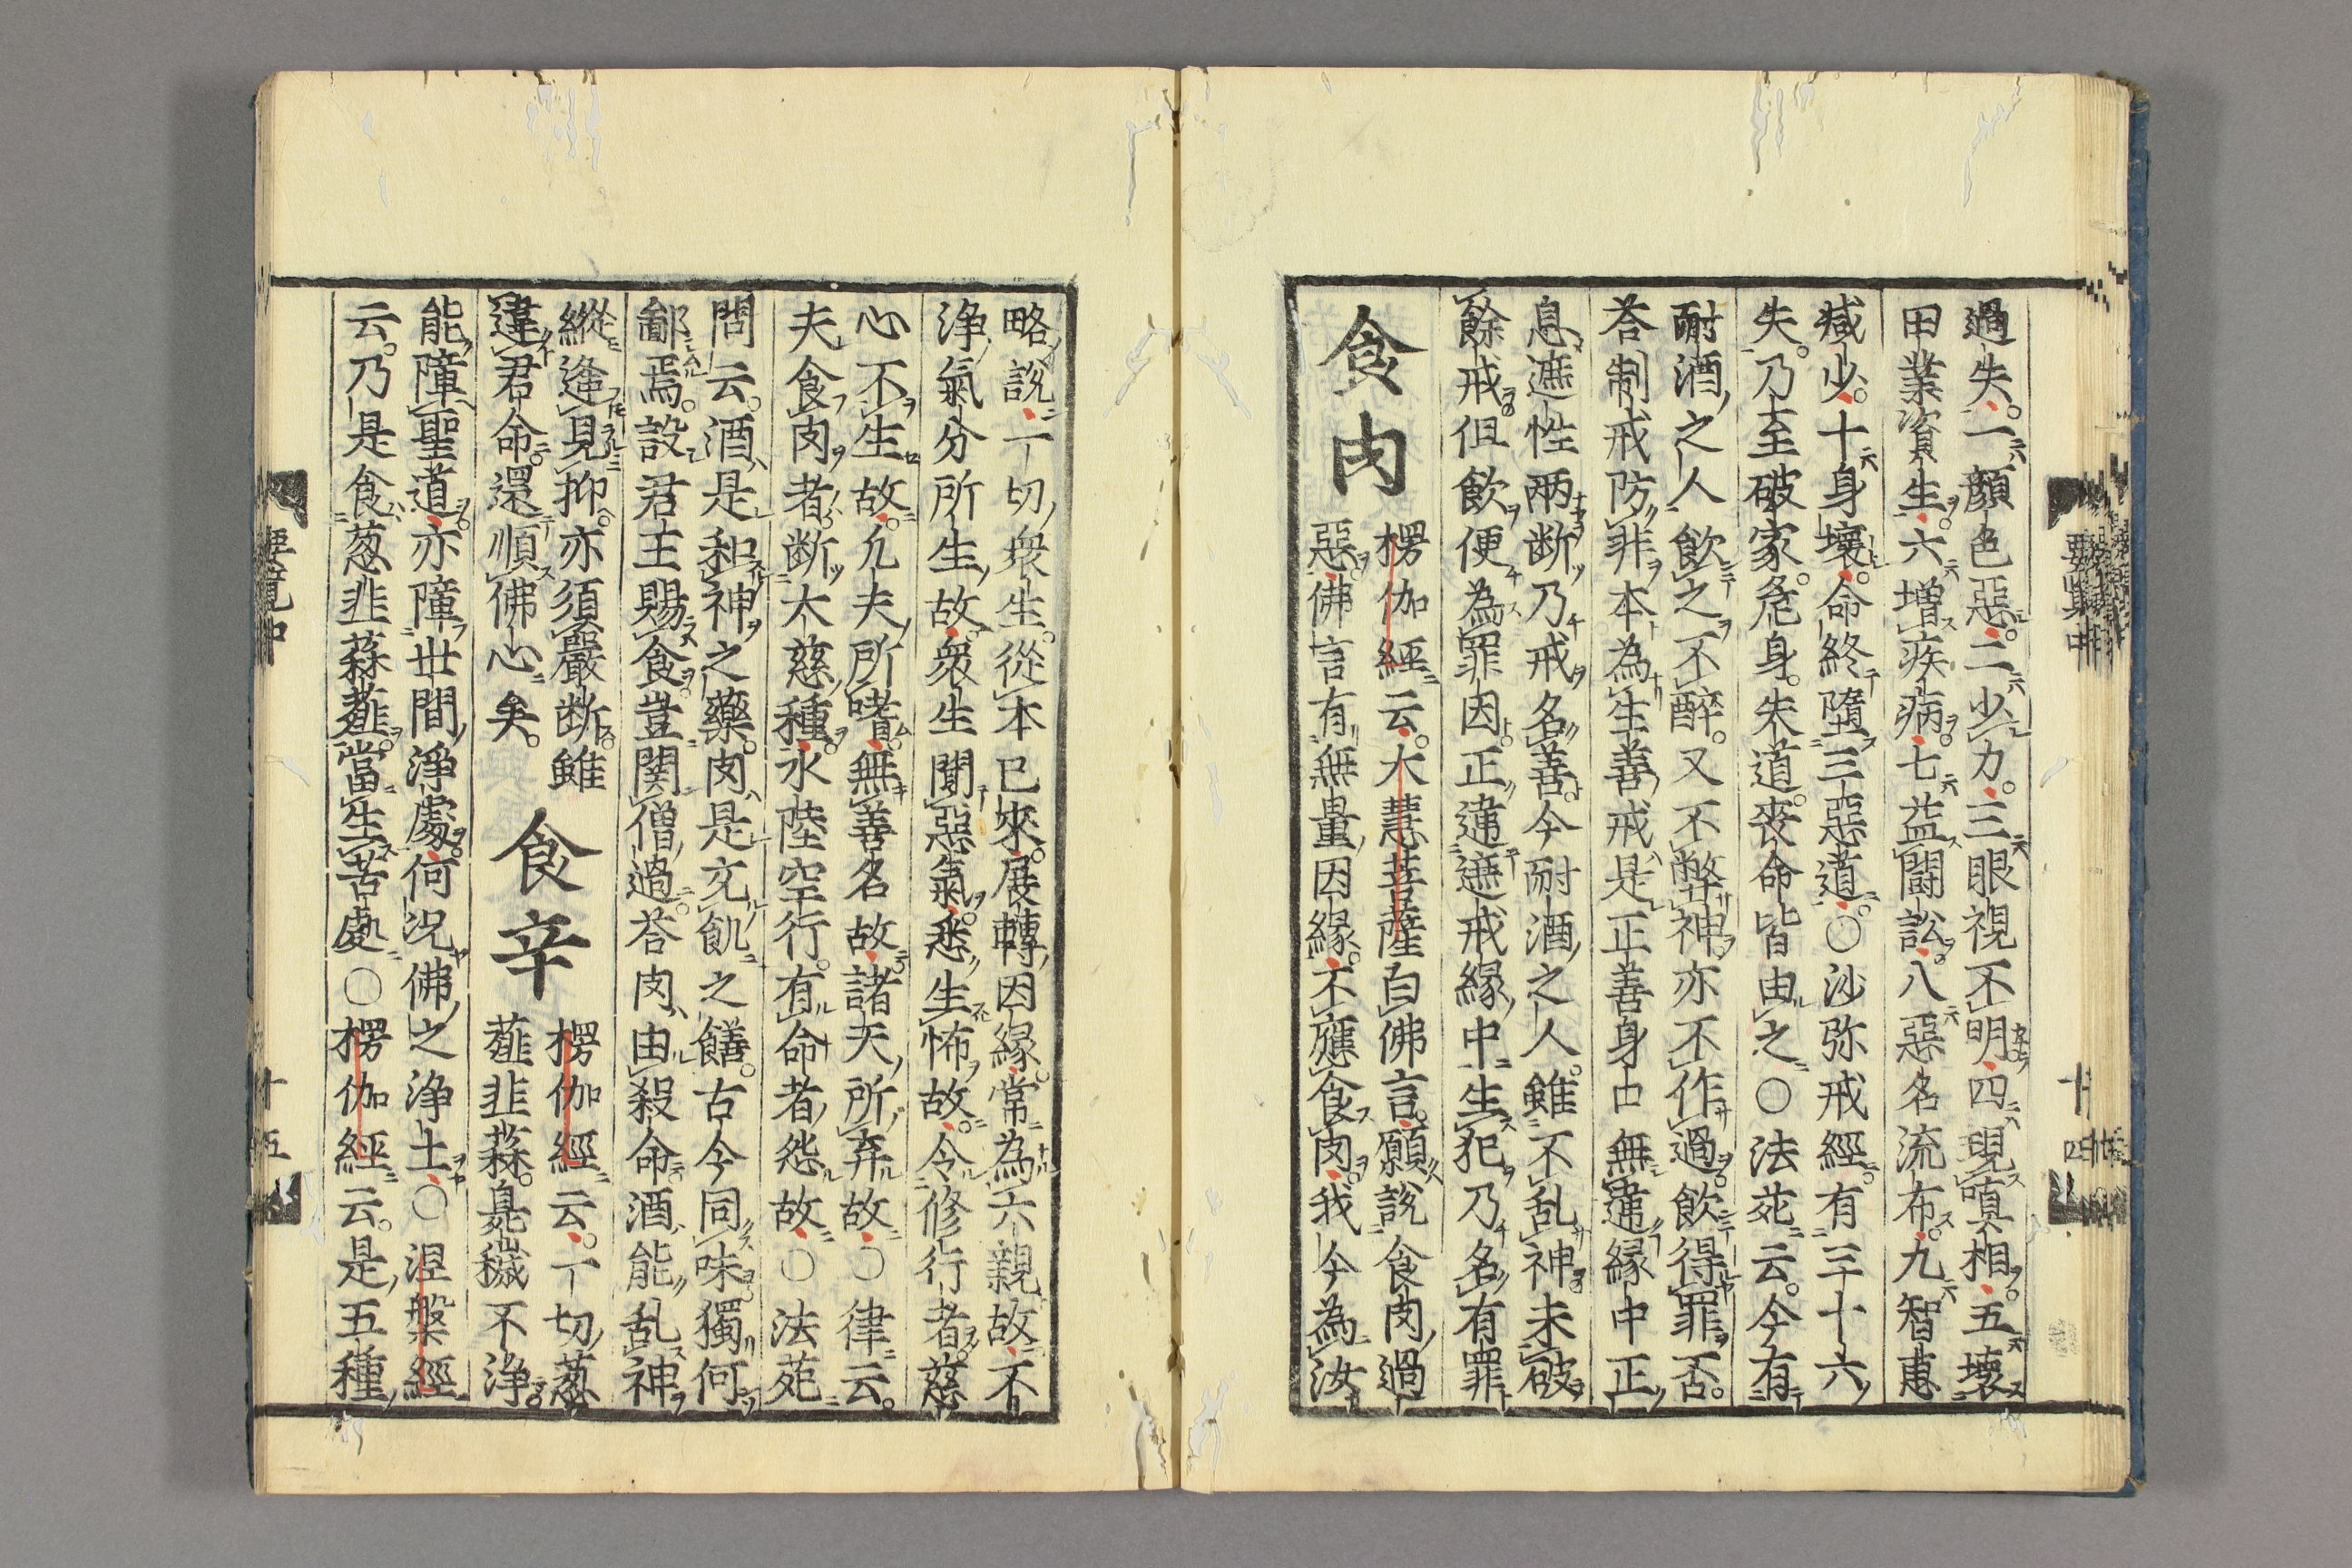 過失。一顔色惡。二少力。三眼視不明。四現嗔相。五壊
田業資生。六増疾病。七益鬪訟。八惡名流布。九智恵
减少。十身壊命終墮三惡道。○沙弥戒經有三十六
失。乃至破家。危身。失道。喪命皆由之○法苑云。今有
耐酒之人飲之不醉。又不弊神亦不作過。飲得罪否。
荅制戒防非本為生善戒是正善身口無違縁中正
息遮性兩断乃戒名善。今耐酒之人。雖不乱神未破
餘戒但飲便為罪因正違遮戒縁中生犯乃名有罪
食肉
楞伽經云。大慧菩薩白佛言。願說食肉過
惡佛言有無量因縁。不應食肉。我今為汝
略說一切衆生。從本已來。展轉因縁。常為六親故不
浄氣分所生故衆生聞惡氣。悉生怖故。令修行者。慈
心不生故。凢夫所嗜。無善名故諸天所弃故○律云。
夫食肉者断大慈種。水陸空行。有命者怨故○法苑
問云。酒是和神之藥。肉是充飢之饍。古今同味獨何
鄙焉。設君王賜食豈関僧過。荅肉由殺命。酒能乱神
縱逢見抑。亦須嚴断雖
違君命。還順佛心矣。
食辛
楞伽經云。一切葱
薤韭蒜。臭穢不浄
能障聖道。亦障世間浄處。何况佛之浄土○涅槃經
云。乃是食葱韭蒜薤。當生苦處○楞伽經云。是五種
要覽中
十四
要覽中
十五